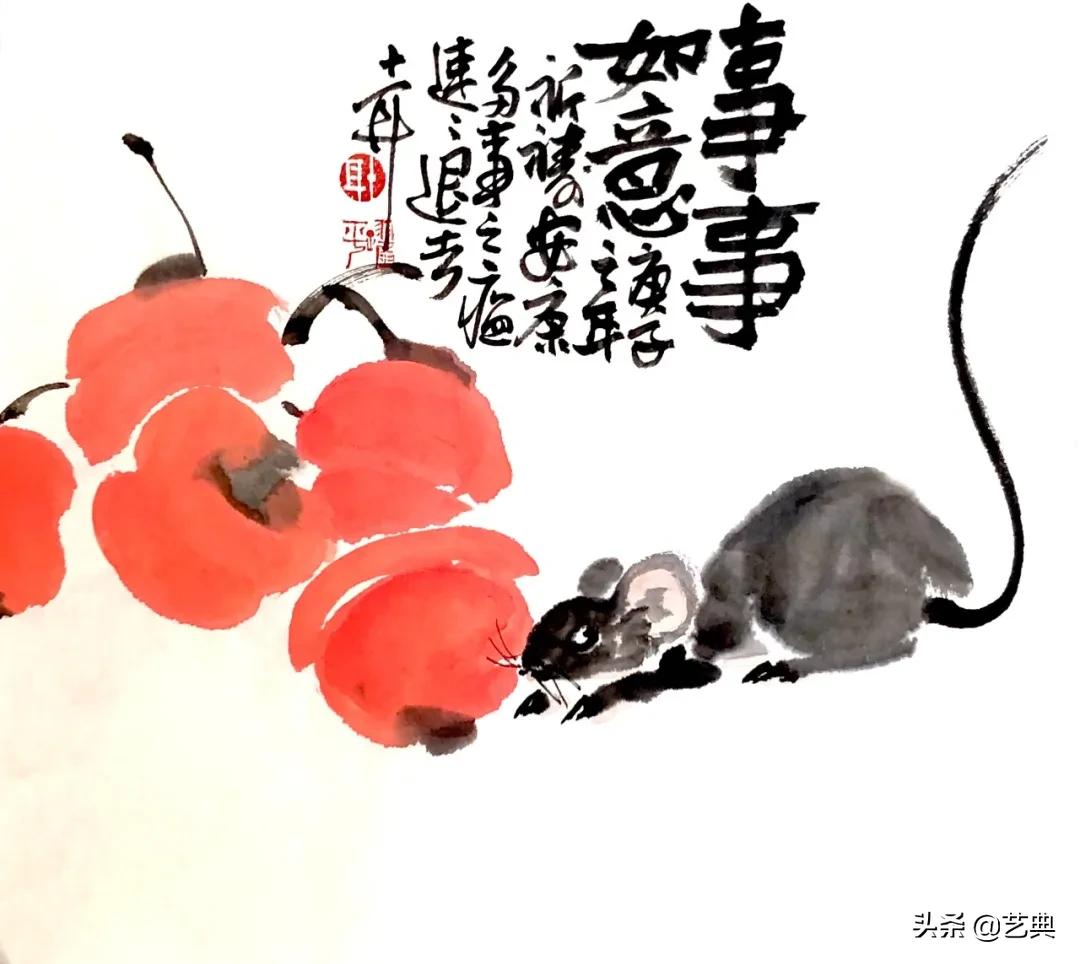 事事
如意
庚子
之年
祈祷安康
多事之瘟
速〻退去
头条 @艺典